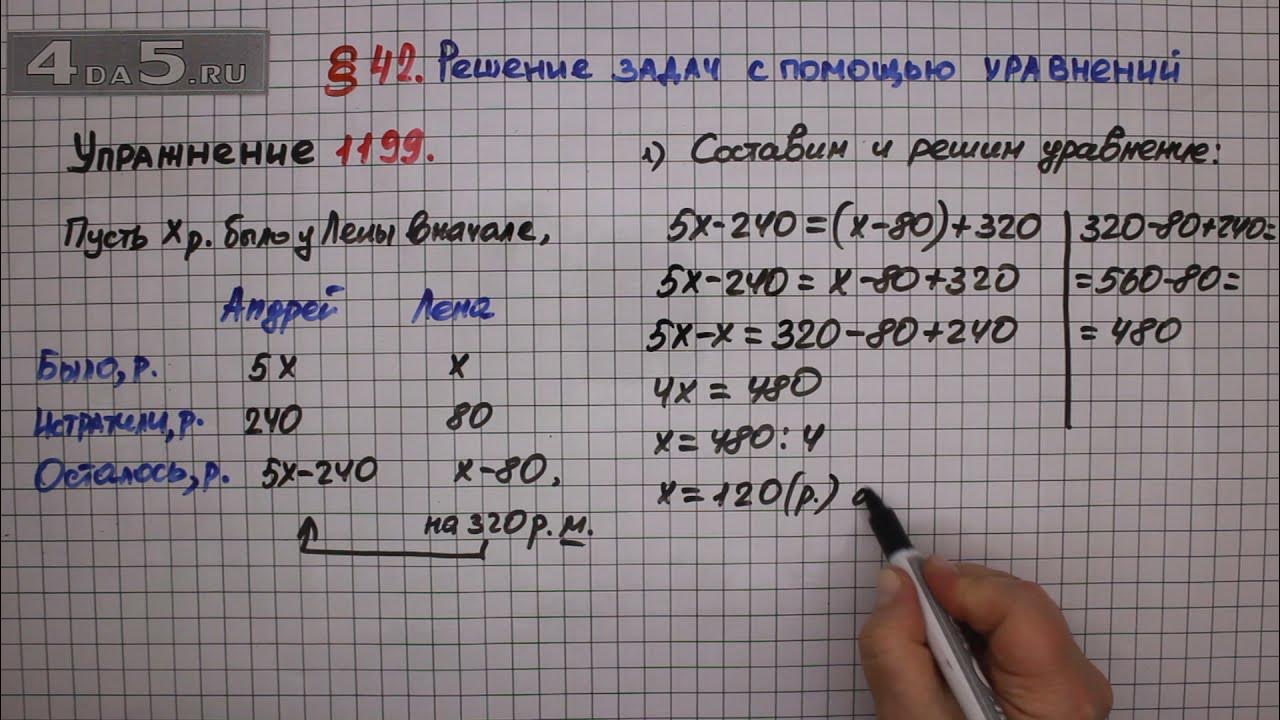 4DA5.RU
§ 42. Решение задач с помощью уравнений
Упражнение 1199.
Пусть x р. было у Лены вначале,
Андрей Лена
Было, р. 5x x
Истратили, р. 240 80
Осталось, р. 5x-240 x-80,
на 320 р. м.
1) Составим и решим уравнение:
5x-240=(x-80)+320
5x-240=x-80+320
5x-x=320-80+240
4x=480
x=480:4
x=120(р.)
320-80+240=
=560-80=
=480